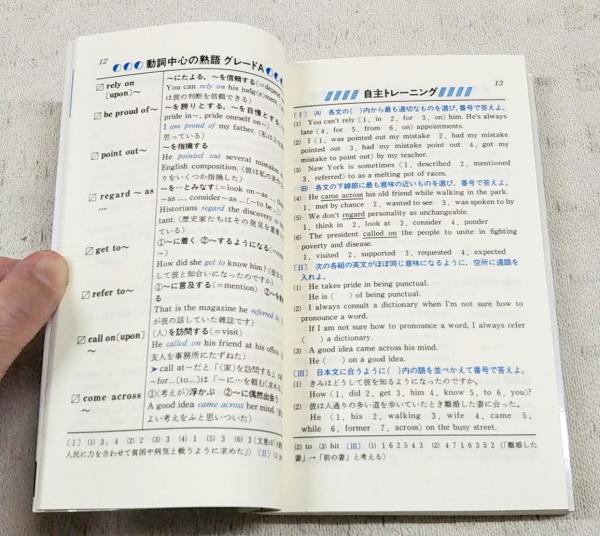 12
動詞中心の熟語 グレードA
rely on
[upon]~
~にたよる, ~を信頼する(=depend
You can rely on his judg(e)ment.
は彼の判断を信頼できる)
be proud of~
~を誇りとする, ~を自慢とする
pride in~, pride oneself on~)
I am proud of my father.
思っている)
point out~
~を指摘する
He pointed out several mistakes
English composition. (彼は私の英
りをいくつか指摘した)
regard ~ as
…
~を…とみなす(=look on~as …,
~as …, consider~as …[~to be
Historians regard the discovery
tant. (歴史家たちはその発見を重要
ている)
get to~
①~に着く ②~するようになる(=
~)
How did she get to know him?
して彼と知合いになったのですか)
refer to~
①~に言及する(=mention) ②~を
する
That is the magazine he referred
が彼の話していた雑誌です)
call on[upon]
~
(人)を訪問する(=visit)
He called on his friend at his office.
友人を事務所にたずねた)
➤ call at~だと「(家)を訪問する」
~for…[to…]は「~に…を頼む(求める
come across
~
①(考えが)浮かぶ ②~に偶然出会う
A good idea came across her mind.
よい考えをふと思いついた)
[Ⅰ] (1) 3, 4 (2) 2 (3) 3 (4) 1 (5) 3 (6) 3 (文意は「大
人民に力を合わせて貧困や病気と戦うように求めた」) [Ⅱ]
13
自主トレーニング
[Ⅰ] (A) 各文の( )内から最も適切なものを選び, 番号で答えよ。
(1) You can't rely (1, in 2, for 3, on) him. He's always
late (4, for 5, from 6, on) appointments.
(2) I (1, was pointed out my mistake 2, had my mistake
pointed out 3, had my mistake point out 4, got my
mistake to point out) by my teacher.
(3) New York is sometimes (1, described 2, mentioned
3, referred) to as a melting pot of races.
(B) 各文の下線部に最も意味の近いものを選び, 番号で答えよ。
(4) He came across his old friend while walking in the park.
1, met by chance 2, wanted to see 3, was spoken to by
(5) We don't regard personality as unchangeable.
1, think in 2, look at 3, consider 4, ponder
(6) The president called on the people to unite in fighting
poverty and disease.
1, visited 2, supported 3, requested 4, expected
[Ⅱ] 次の各組の英文がほぼ同じ意味になるように, 空所に適語を
入れよ。
(1) He takes pride in being punctual.
He is ( ) of being punctual.
(2) I always consult a dictionary when I'm not sure how to
pronounce a word.
If I am not sure how to pronounce a word, I always refer
( ) a dictionary.
(3) A good idea came across his mind.
He ( ) on a good idea.
[Ⅲ] 日本文に合うように( )内の語を並べかえて番号で答えよ。
(1) きみはどうして彼を知るようになったのですか。
How (1, did 2, get 3, him 4, know 5, to 6, you)?
(2) 彼は人通りの多い道を歩いていたとき離婚した妻に会った。
He (1, his 2, walking 3, wife 4, came 5,
while 6, former 7, across) on the busy street.
(2) to (3) hit [Ⅲ] (1) 1 6 2 5 4 3 (2) 4 7 1 6 3 5 2 (「離婚した
妻」→「前の妻」と考える)